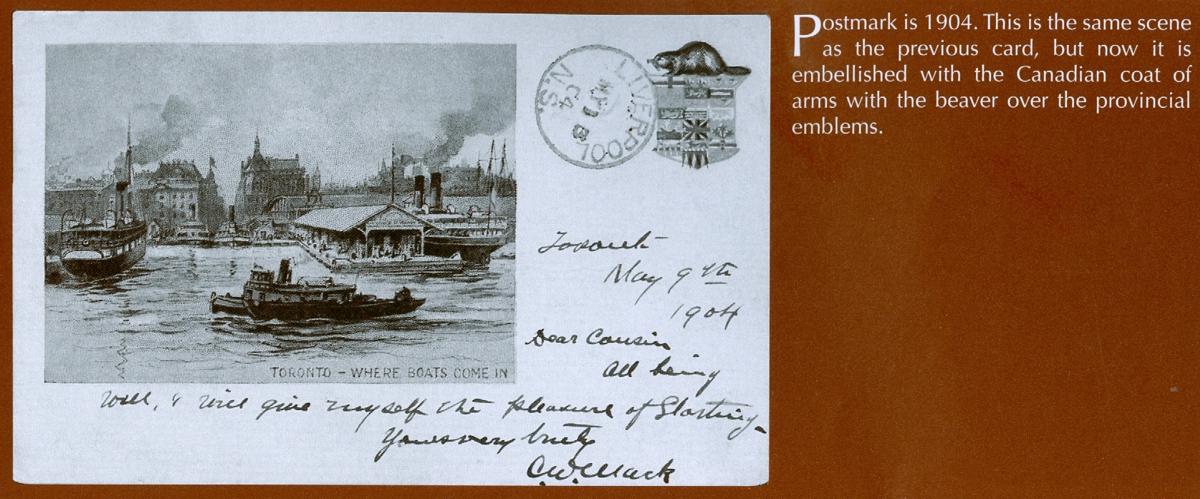 Postmark is 1904. This is the same scene
as the previous card, but now it is
embellished with the Canadian coat of
arms with the beaver over the provincial
emblems.
LIVERPOOL
N.S.
04
TORONTO – WHERE BOATS COME IN
Toronto
May 9th
1904
Dear Cousin
All being
well, I will give myself the pleasure of Starting
Yours very truly
C.W. Mack